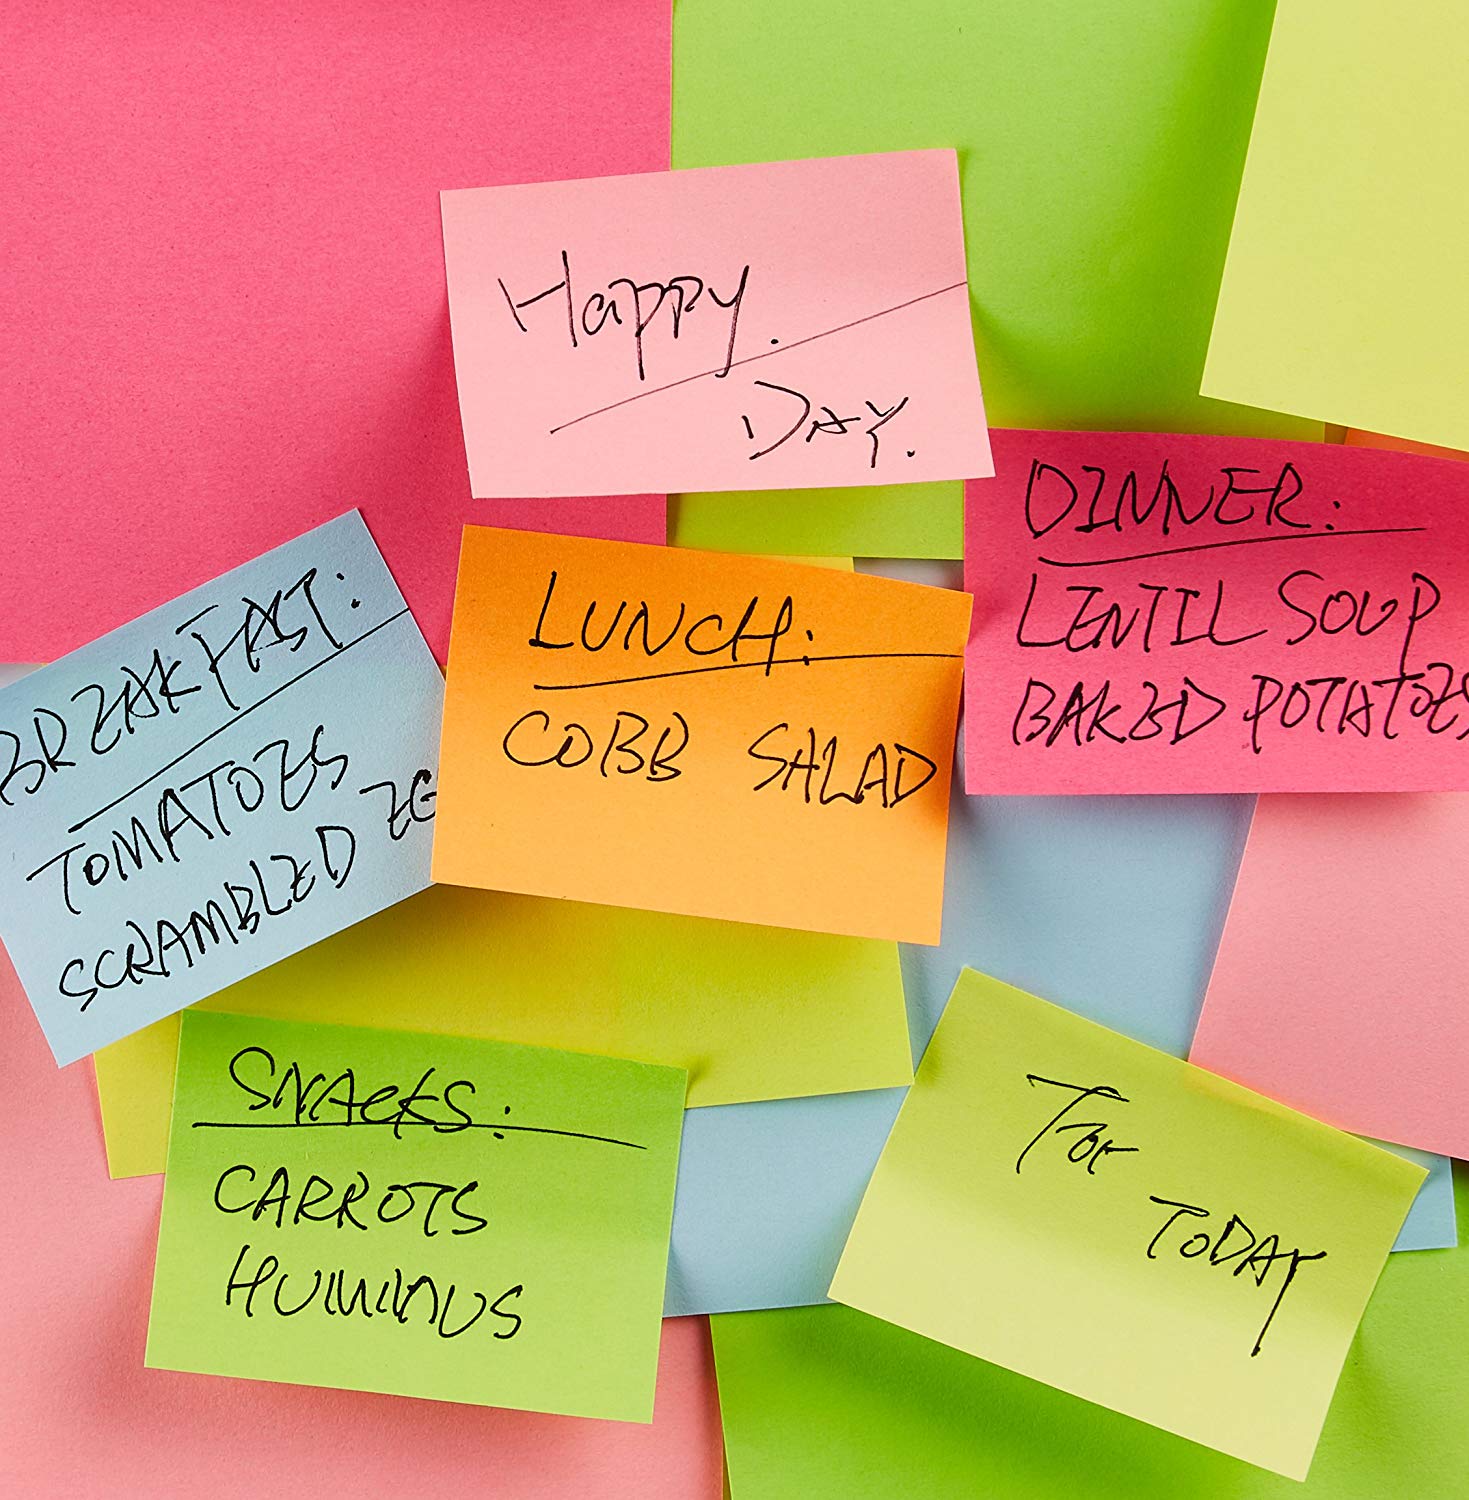 Happy.
Day.
BREAKFAST:
TOMATOES
SCRAMBLED EG
LUNCH:
COBB SALAD
DINNER:
LENTIL SOUP
BAKED POTATOES
SNACKS:
CARROTS
HUMMUS
For
TODAY